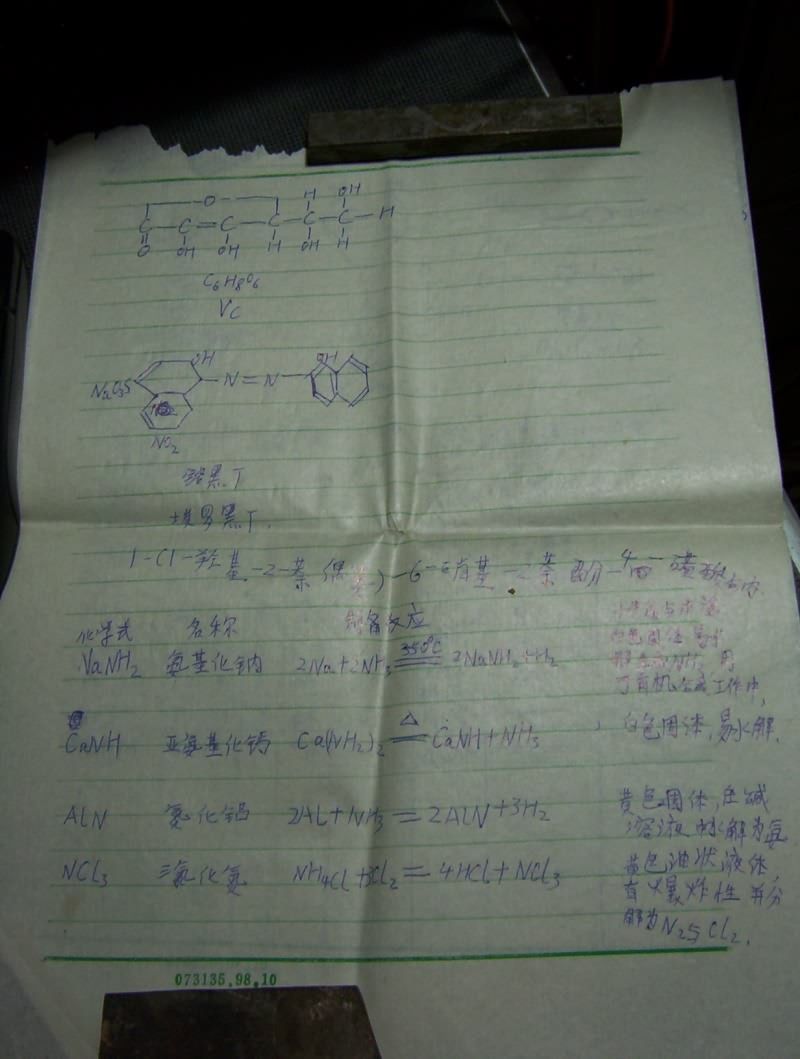 O H OH
C — C = C — C — C — C — H
O OH OH H OH H
C₆H₈O₆
Vc
OH OH
NaO₃S — N = N —
NO₂
铬黑T
埃罗黑T.
1-(1-羟基-2-萘偶氮)-6-硝基-2-萘酚-4-磺酸钠
化学式 名称 制备反应 性质与用途
NaNH₂ 氨基化钠 2Na+2NH₃ 350℃ 2NaNH₂+H₂ 白色固体 易水
解 NH₃ 用
于有机合成工作中,
CaNH 亚氨基化钙 Ca(NH₂)₂ △ CaNH+NH₃ 白色固体,易水解.
AlN 氮化铝 2Al+NH₃=2AlN+3H₂ 黄色固体,在碱
溶液中水解为氨
NCl₃ 三氯化氮 NH₄Cl+3Cl₂=4HCl+NCl₃ 黄色油状液体,
有爆炸性并分
解为N₂与Cl₂.
073135.98.10